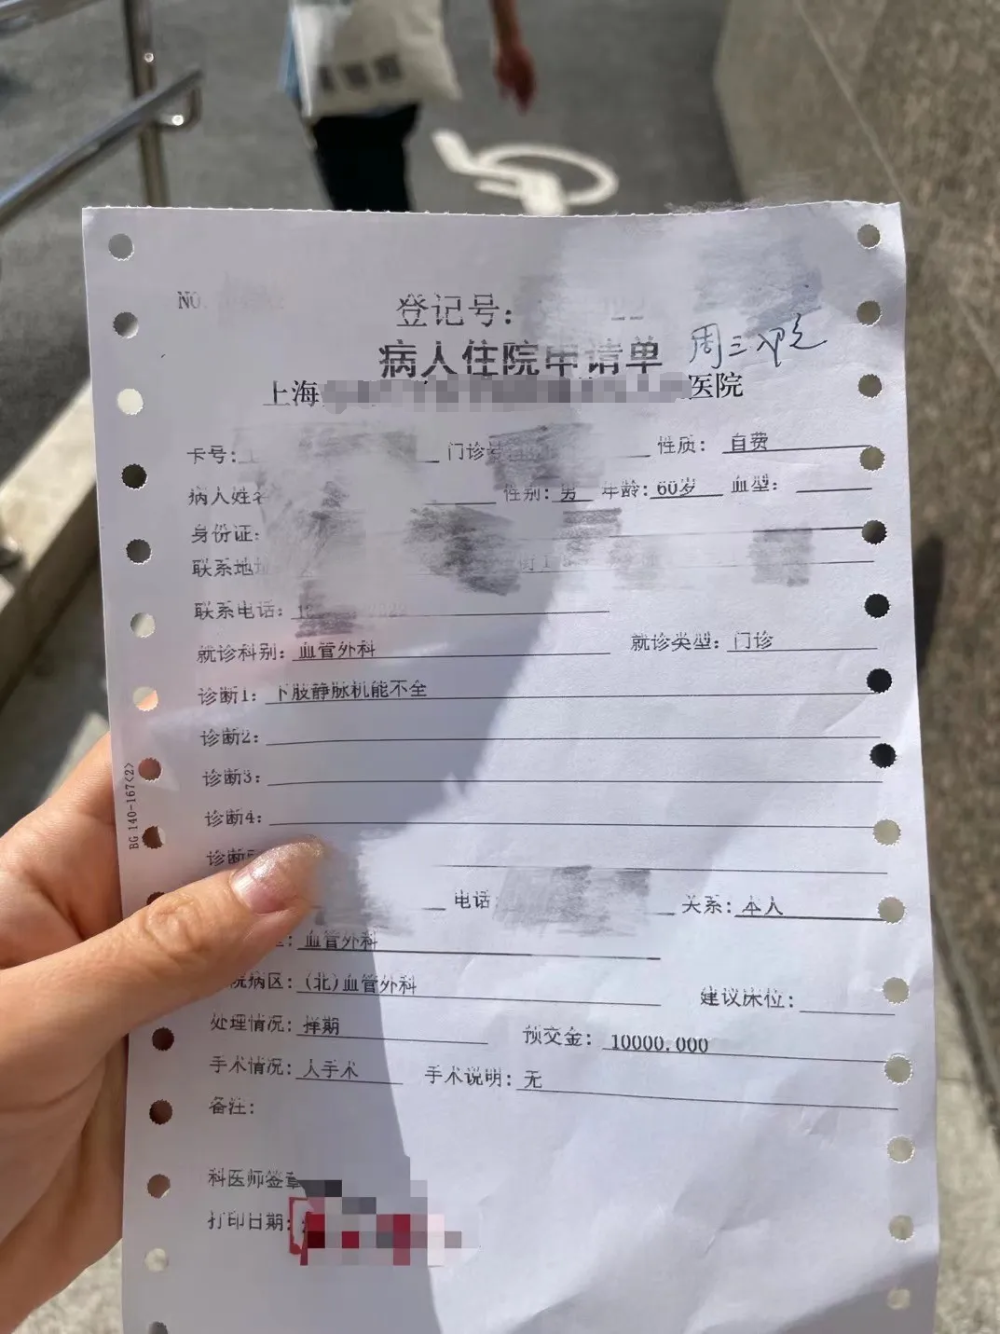 NO.
登记号:
病人住院申请单
周三
上海 医院
卡号: 门诊 性质: 自费
病人姓名 性别: 男 年龄: 60岁 血型:
身份证:
联系地址
联系电话:
就诊科别: 血管外科 就诊类型: 门诊
诊断1: 下肢静脉机能不全
诊断2:
诊断3:
诊断4:
诊断
电话 关系: 本人
血管外科
院病区: (北)血管外科 建议床位:
处理情况: 择期 预交金: 10000.000
手术情况: 人手术 手术说明: 无
备注:
科医师签章
打印日期:
BG 140-167<2>